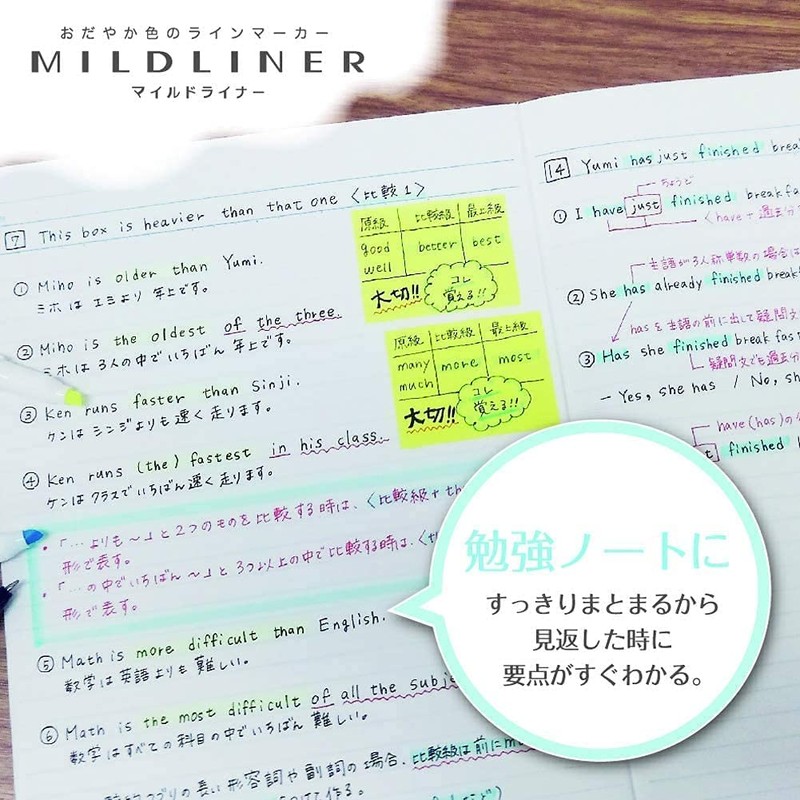 おだやか色のラインマーカー
MILDLINER
マイルドライナー
7 This box is heavier than that one 〈比較1〉
① Miho is older than Yumi.
ミホは エミより 年上です。
② Miho is the oldest of the three.
ミホは 3人の中でいちばん 年上です。
③ Ken runs faster than Sinji.
ケンは シンジよりも 速く 走ります。
④ Ken runs (the) fastest in his class.
ケンは クラスでいちばん 速く 走ります。
・「…よりも〜」と2つのものを比較する時は、〈比較級+th
形で表す。
・「…の中でいちばん〜」と3つ以上の中で比較する時は、〈th
形で表す。
⑤ Math is more difficult than English.
数学は英語よりも 難しい。
⑥ Math is the most difficult of all the subje
数学はすべての科目の中でいちばん 難しい。
長い形容詞や副詞の場合、比較級は前にm
作る。
原級 比較級 最上級
good better best
well
大切!! コレ
覚える!!
原級 比較級 最上級
many more most
much
大切!! コレ
覚える!!
14 Yumi has just finished brea
ちょうど
① I have just finished breakfa
〈have+過去分
主語が3人称単数の場合は
② She has already finished break
hasを主語の前に出して疑問文
③ Has she finished breakfast
疑問文でも過去分
– Yes, she has / No, sh
have(has)の
finished
勉強ノートに
すっきりまとまるから
見返した時に
要点がすぐわかる。